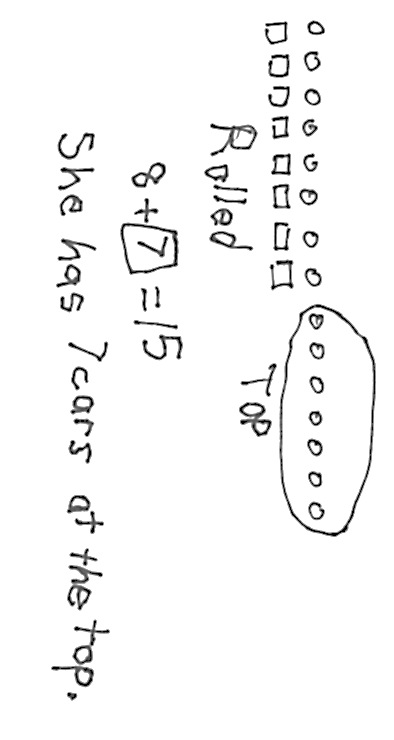 Rolled
TOP
8+7=15
She has 7cars at the top.